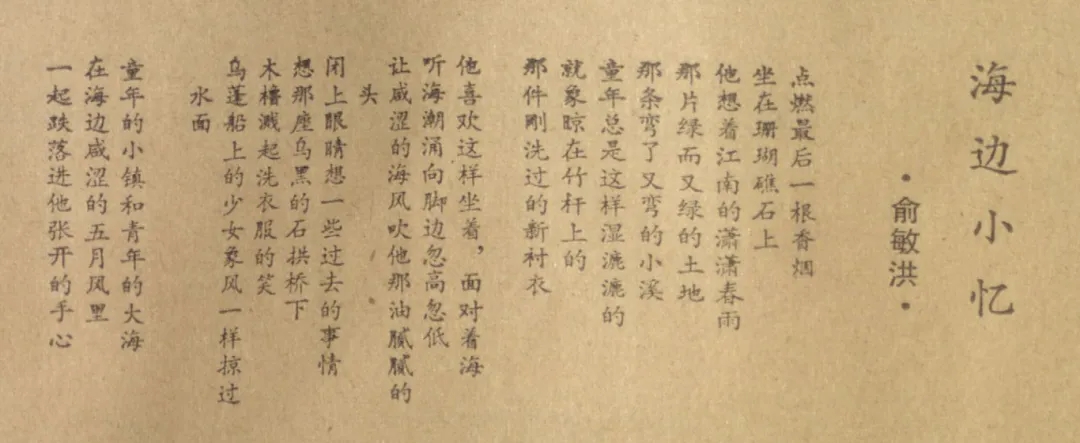 海边小忆
·俞敏洪·
点燃最后一根香烟
坐在珊瑚礁石上
他想着江南的潇潇春雨
那片绿而又绿的土地
那条弯了又弯的小溪
童年总是这样湿漉漉的
就象晾在竹杆上的
那件刚洗过的新衬衣
他喜欢这样坐着，面对着海
听海潮涌向脚边忽高忽低
让咸涩的海风吹他那油腻腻的
头
闭上眼睛想一些过去的事情
想那座乌黑的石拱桥下
木橹溅起洗衣服的笑
乌蓬船上的少女象风一样掠过
水面
童年的小镇和青年的大海
在海边咸涩的五月风里
一起跌落进他张开的手心